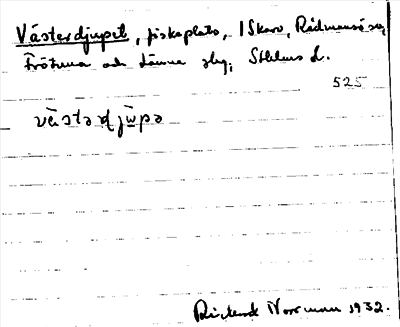 Västerdjupet, fiskeplats, I Skaro, Rådmansö sn,
Frötuna och Länna slg; Sthlms l.
525
västərdjupə
Rickard Norrman 1932.